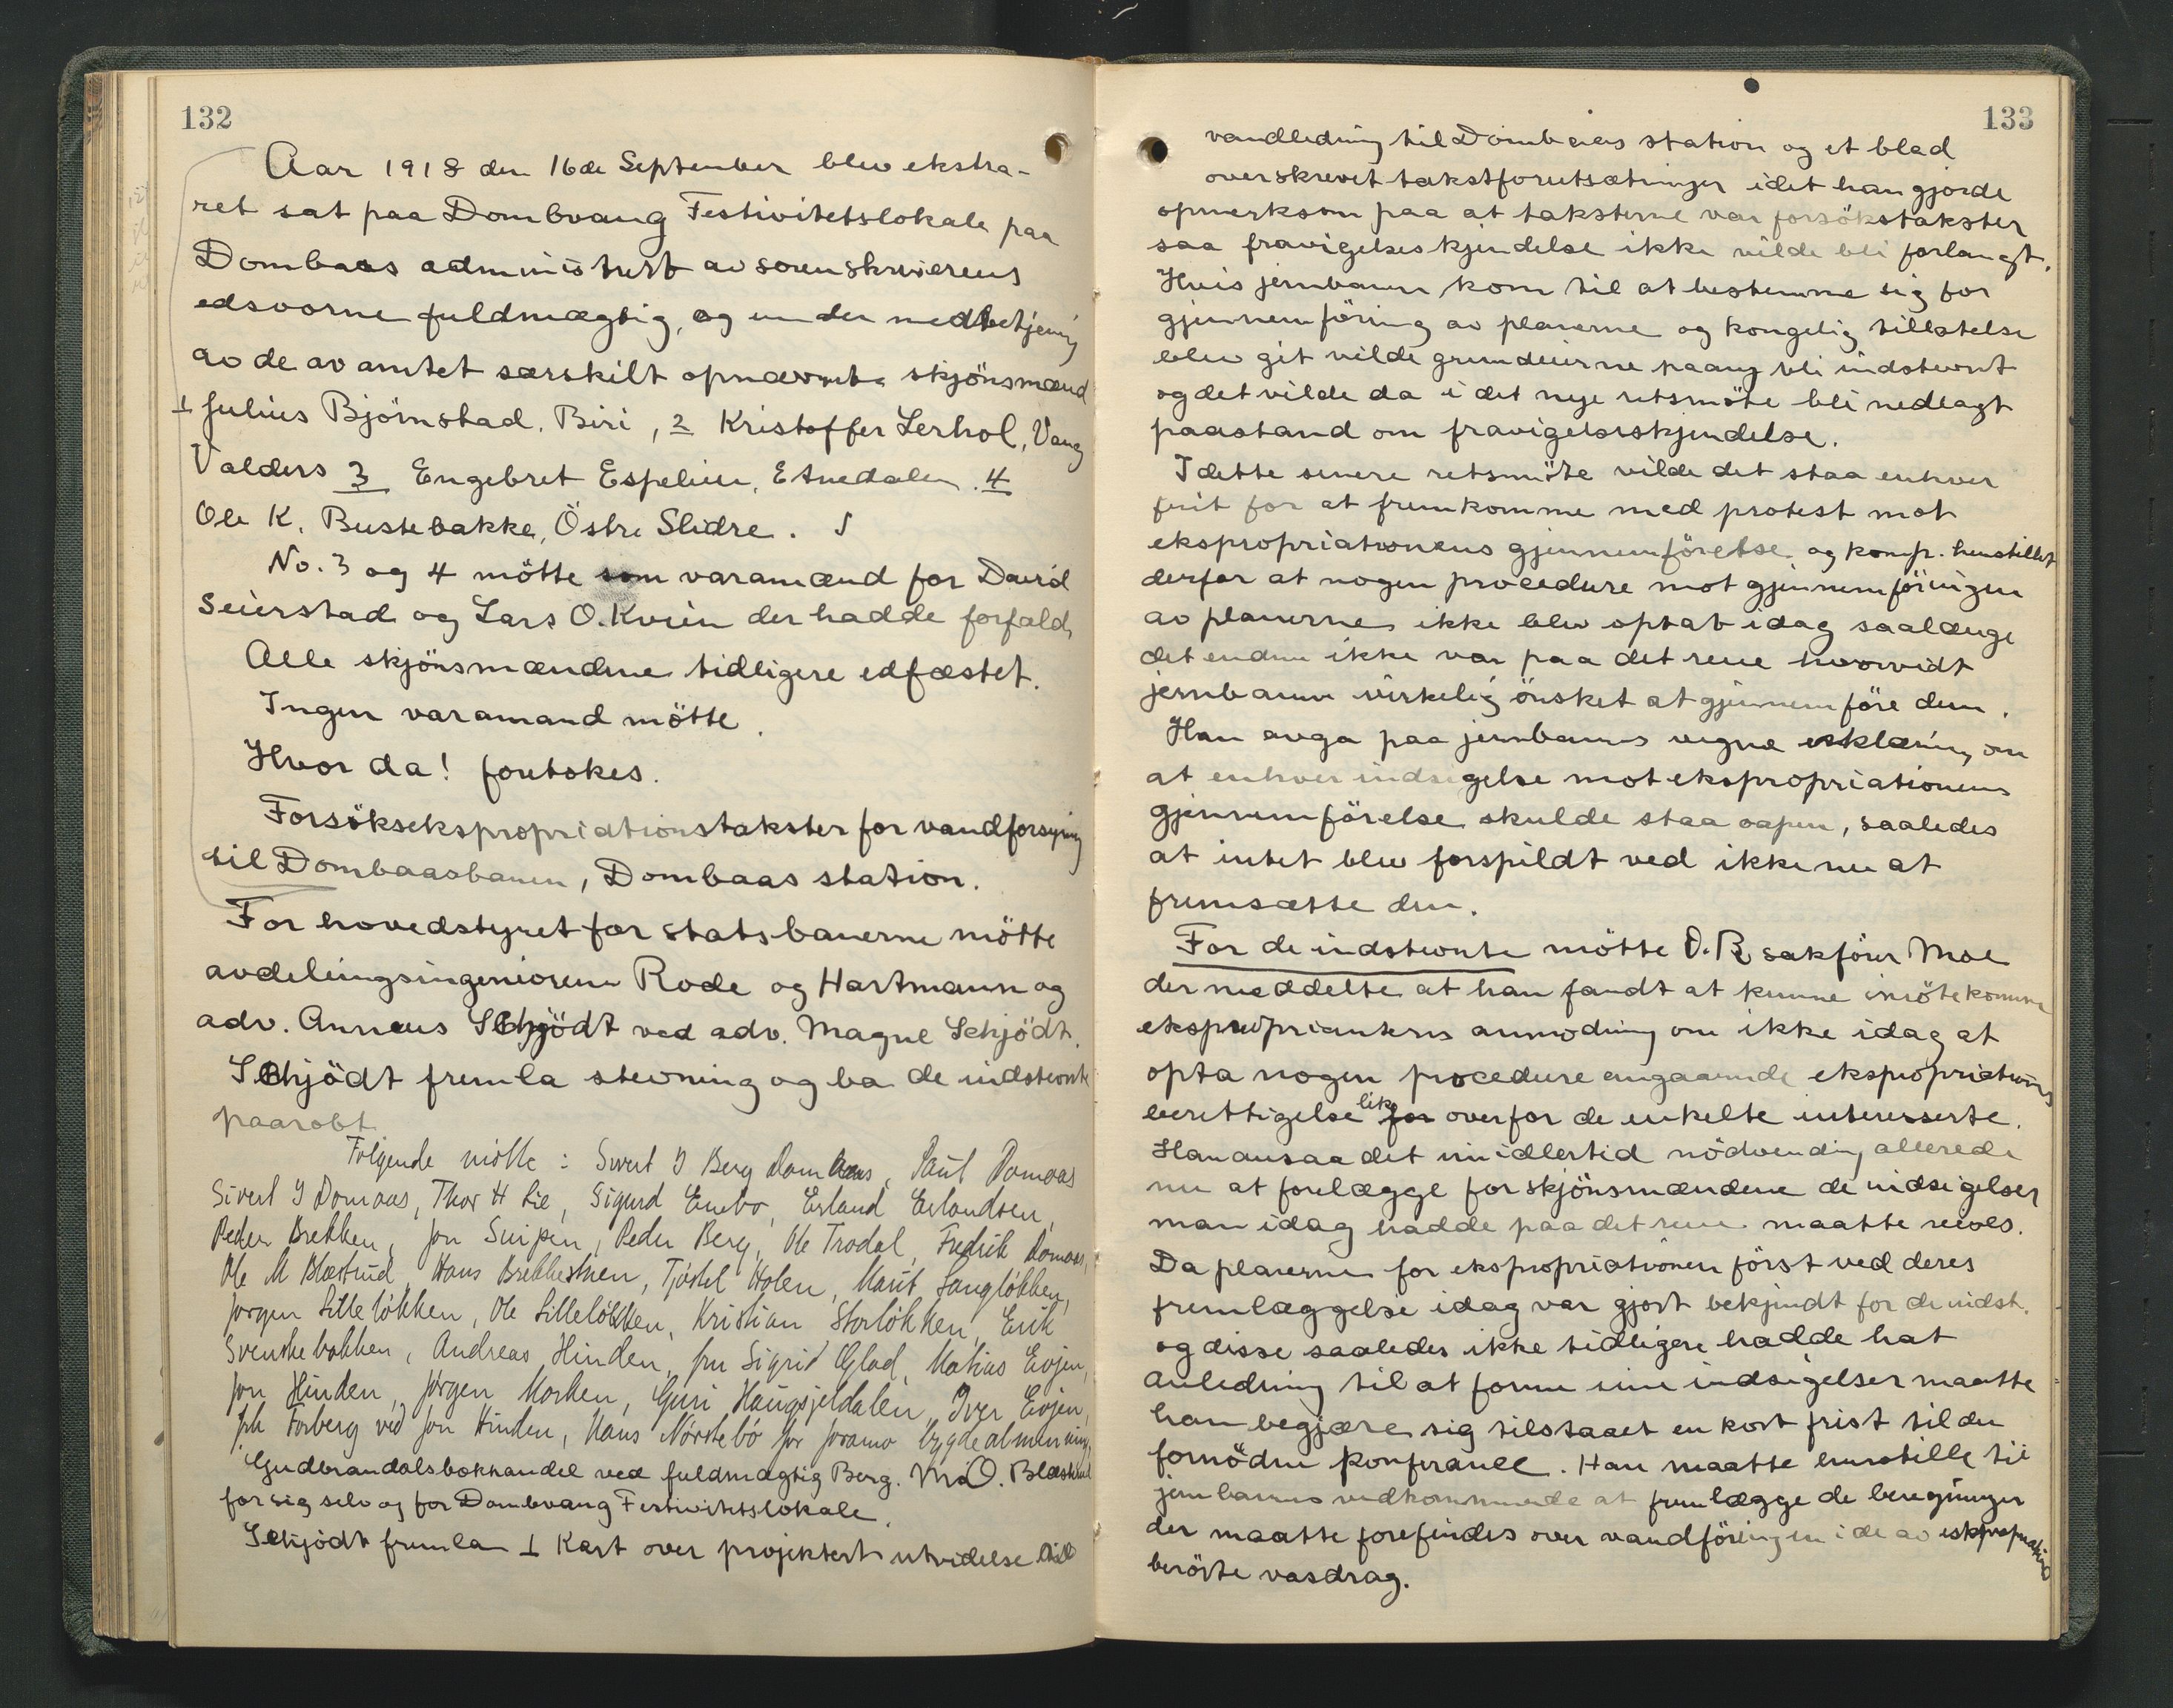 132
Aar 1918 den 16de September blev ekstra-
ret sat paa Dombvang Festivitetslokale paa
Dombaas administrert av sorenskriverens
edsvorne fuldmægtig, og under medbetjening
av de av amtet særskilt opnævnte skjönsmænd
1 Julius Björnstad, Biri, 2 Kristoffer Lerhol, Vang
Valders 3 Engebret Espelien, Etnedalen. 4
Ole K. Bustebakke, Östre Slidre.
No. 3 og 4 mötte som varamænd for David
Seierstad og Lars O. Kvien der hadde forfald.
Alle skjönsmændene tidligere edfæstet.
Ingen varamand mötte.
Hvor da! foretokes.
Forsöksekspropriationstakster for vandforsyning
til Dombaasbanen, Dombaas station.
For hovedstyret for statsbanerne mötte
avdelingsingeniørene Rode og Hartmann og
adv. Annæus Schjödt ved adv. Magne Schjödt.
Schjödt fremla stevning og ba de indstevnte
paaropt.
Følgende møtte: Sivert I Berg Dombaas, Paul Domaas
Sivert I Domaas, Thor H Lie, Sigurd Enebo, Erland Erlandsen,
Peder Brekken, Jon Snipen, Peder Berg, Ole Trodal, Fredrik Domaas,
Ole M Blæstrud, Hans Brekkestuen, Tjøstel Holen, Marit Langløkken,
Jørgen Lilleløkken, Ole Lilleløkken, Kristian Storløkken, Erik
Svenskebakken, Andreas Hinden, fru Sigrid Glad, Matias Evjen,
Jon Hinden, Jørgen Morken, Guri Haugsjeldalen, Iver Evjen,
Joh Forberg ved Jon Hinden, Hans Nørstebø for Joramo bygdealmenning,
Gudbrandalsbokhandel ved fuldmægtig Berg. M. O. Blæstrud
for sig selv og for Dombvang Festivitetslokale.
Schjödt fremla 1 Kart over projektert utvidelse til
133
vandledning til Dombaas station og et blad
overskrevet takstforutsætninger idet han gjorde
opmerksom paa at taksterne var forsökstakster
saa fravigelseskjendelse ikke vilde bli forlangt.
Hvis jernbanen kom til at bestemme sig for
gjennemföring av planerne og kongelig tillatelse
blev git vilde grundeierne paany bli indstevnt
og det vilde da i det nye retsmöte bli nedlagt
paastand om fravigelseskjendelse.
I dette senere retsmöte vilde det staa enhver
frit for at fremkomme med protest mot
ekspropriationens gjennemförelse og komp. henstillet
derfor at nogen procedure mot gjennemföringen
av planerne ikke blev optat idag saalænge
det endnu ikke var paa det rene hvorvidt
jernbanen virkelig önsket at gjennemföre dem.
Han avga paa jernbanens vegne erklæring om
at enhver indsigelse mot ekspropriationens
gjennemförelse skulde staa aapen, saaledes
at intet blev forspildt ved ikke nu at
fremsætte den.
For de indstevnte mötte O.R. sakförer Moe
der meddelte at han fandt at kunne imötekomme
ekspropriantens anmodning om ikke idag at
opta nogen procedure angaaende ekspropriations
berettigelse like for overfor de enkelte interesserte.
Han ansaa det imidlertid nödvendig allerede
nu at forelægge for skjönsmændene de indsigelser
man idag hadde paa det rene maatte reises.
Da planerne for ekspropriationen först ved deres
fremlæggelse idag var gjort bekjendt for de indst.
og disse saaledes ikke tidligere hadde hat
anledning til at forme sine indsigelser maatte
han begjære sig tilstaaet en kort frist til den
fornödne konferanse. Han maatte henstille til
jernbanens vedkommende at fremlægge de beregninger
der maatte forefindes over vandföringen i de av ekspropriation
berörte vasdrag.